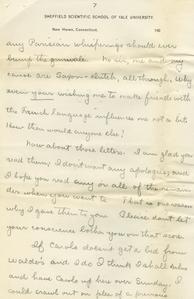 7
SHEFFIELD SCIENTIFIC SCHOOL OF YALE UNIVERSITY
New Haven, Connecticut, 190
any Parisian whisperings should ever
bring the No sir, me and my
are all through. Why
even your wishing me to make friends with
the French Language influences me not a bit.
How then would anyone else?
Now about those letters. I am glad you
read them, I don't want any apologies, and
I hope you read any or all of the remain-
der when you want to. That is one reason
why I gave them to you. Please don't let
your conscience bother you on that score.
If Carol doesn't get a bid from
Walden and I do I think I shall
and have Carol up here over Sunday. I
could crawl out of a previous